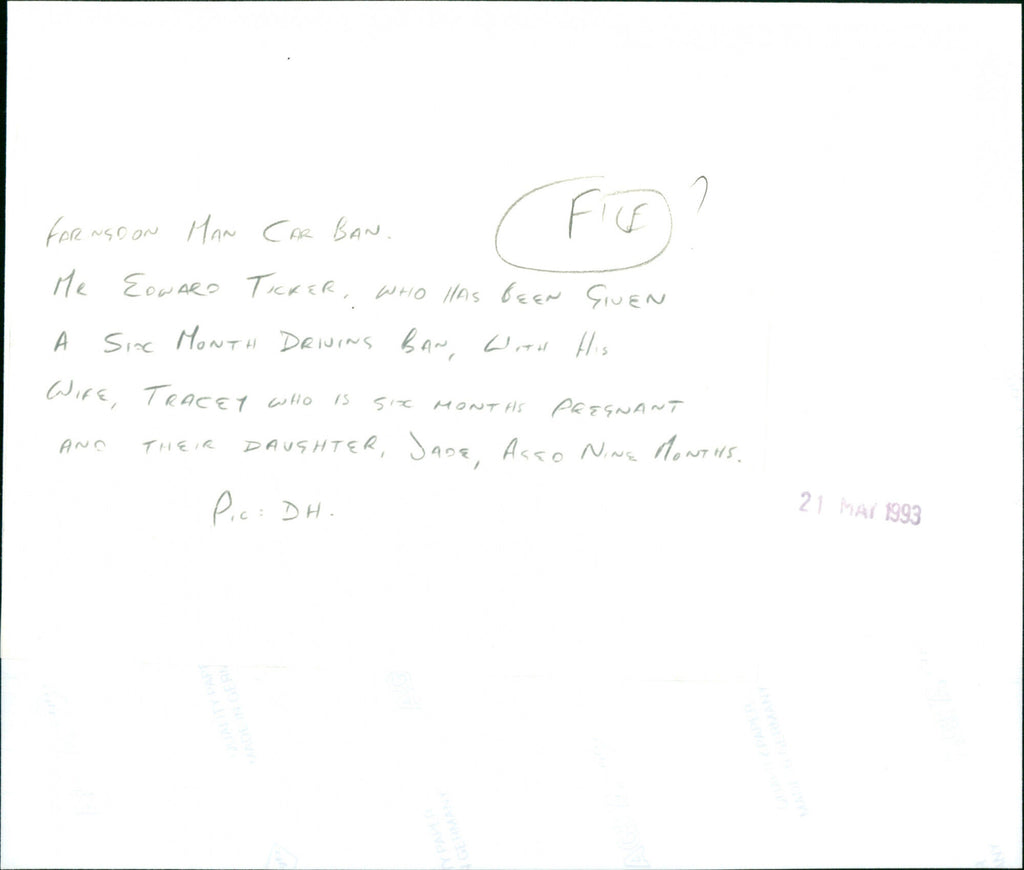 FARNSDON MAN CAR BAN.
FILE ?
MR EDWARD TICKER, WHO HAS BEEN GIVEN
A SIX MONTH DRIVING BAN, WITH HIS
WIFE, TRACEY WHO IS SIX MONTHS PREGNANT
AND THEIR DAUGHTER, JADE, AGED NINE MONTHS.
PIC: DH.
21 MAY 1993
MADE IN GERMANY